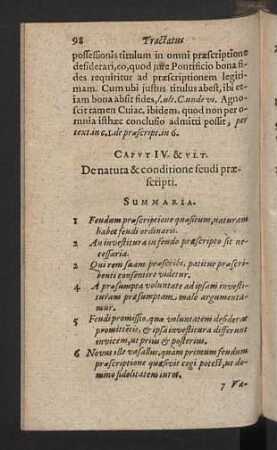 98 Tractatus
possessionis titulum in omni præscriptione
desiderari, eo, quod jure Pontificio bona fi-
des requiritur ad præscriptionem legiti-
mam. Cum ubi justus titulus abest, ibi et-
iam bona absit fides, l. ult. C. unde vi. Agno-
scit tamen Cuiac. ibidem. quod non per o-
mnia isthæc conclusio admitti possit, per
text. in c. 1. de præscript. in 6.
CAPVT IV. & VLT.
De natura & conditione feudi præ-
scripti.
SUMMARIA.
1 Feudum præscriptione quæsitum, naturam
habet feudi ordinarii.
2 An investitura in feudo præscripto sit ne-
cessaria.
3 Qui rem suam præscribi, patitur præscri-
benti consentire videtur.
4 A præsumpta voluntate ad ipsam investi-
turam præsumptam, male argumenta-
mur.
5 Feudi promissio, quæ voluntatem desiderat
promittētis, & ipsa investitura differunt
invicem, ut prius & posterius.
6 Novus ille vasallus, quam primum feudum
præscriptione quæsivit cogi potest, ut do-
mino fidelitatem iuret.
7 Va-